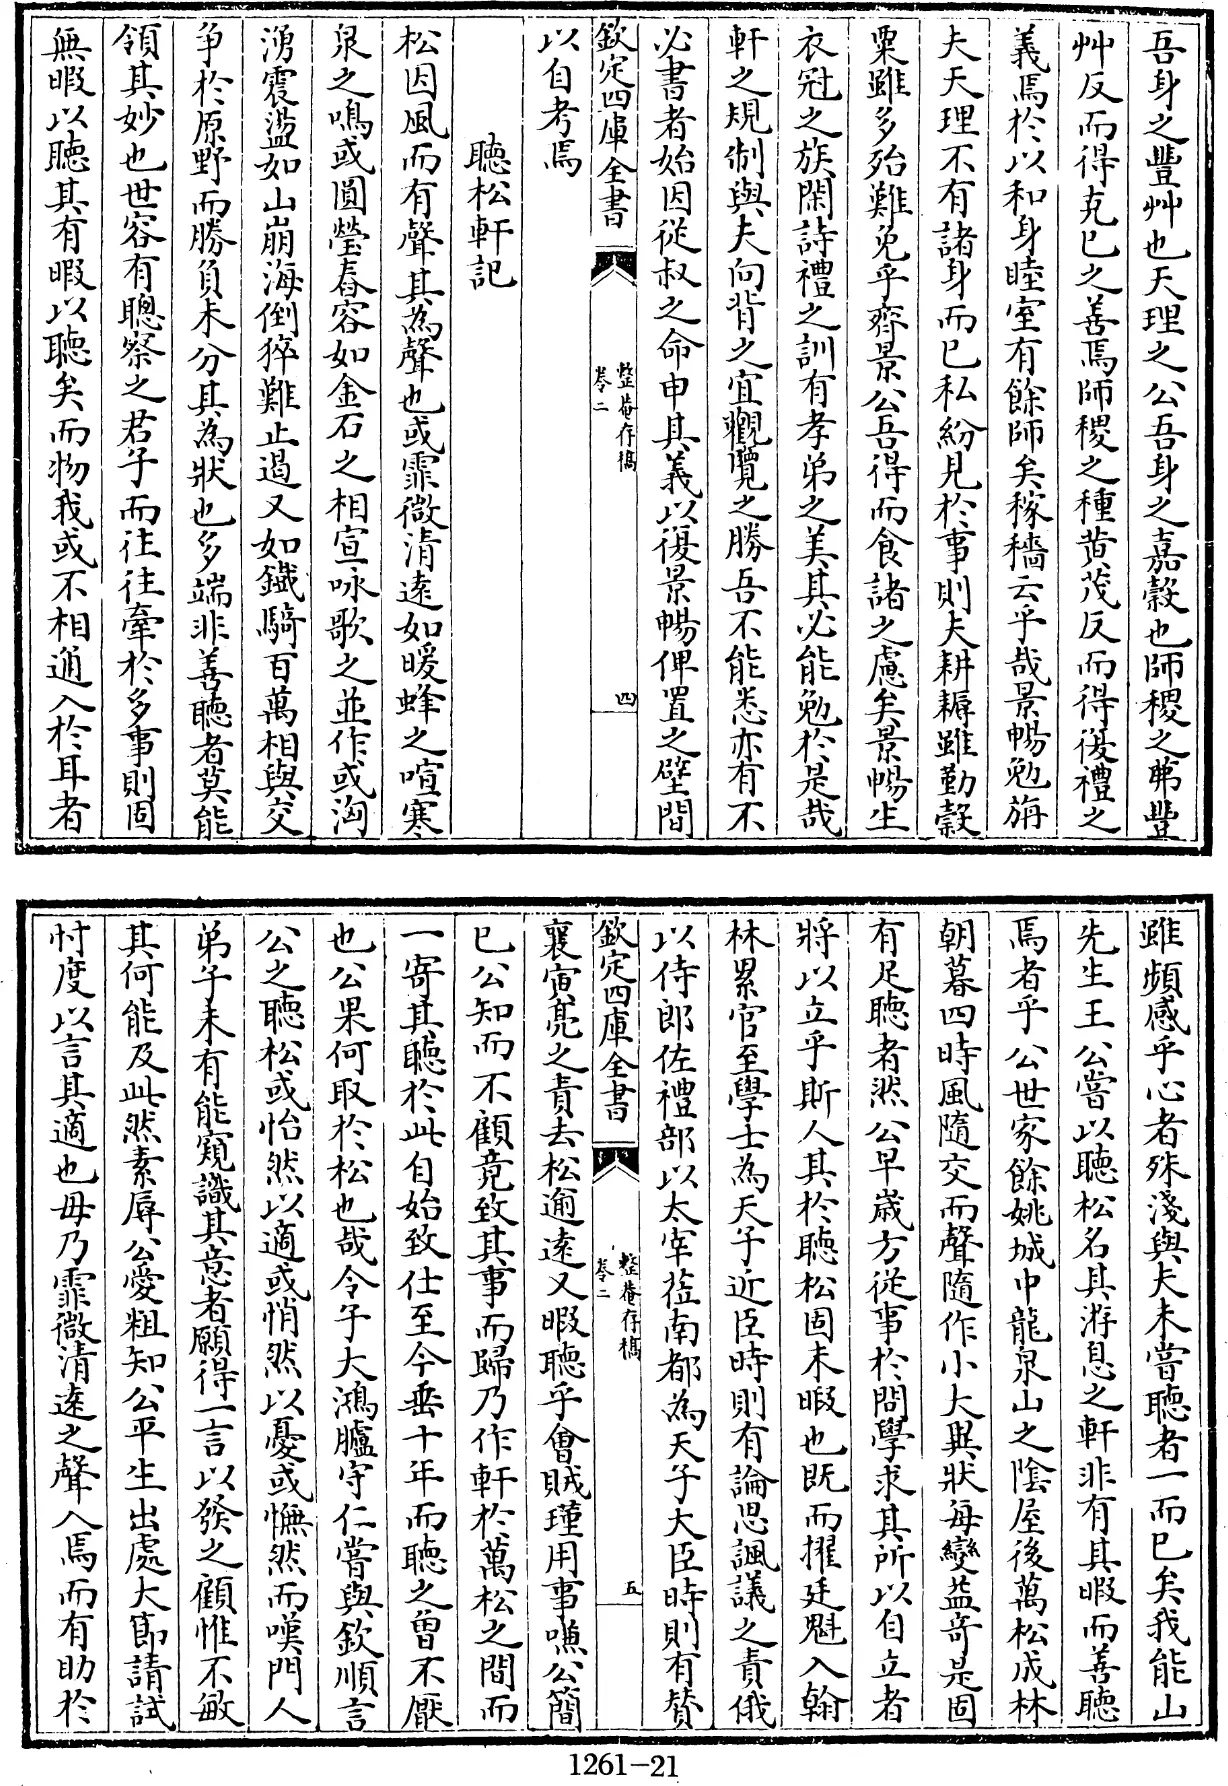 吾身之豐艸也天理之公吾身之嘉穀也師稷之茀豐
艸反而得克巳之善焉師稷之種黄茂反而得復禮之
義焉於以和身睦室有餘師矣稼穡云乎哉景暢勉旃
夫天理不有諸身而巳私紛見於事則夫耕耨雖勤穀
粟雖多殆難免乎齊景公吾得而食諸之慮矣景暢生
衣冠之族閑詩禮之訓有孝弟之美其必能勉於是哉
軒之規制與夫向背之宜觀覽之勝吾不能悉亦有不
必書者始因從叔之命申其義以復景暢俾置之壁間
欽定四庫全書
整菴存稿
卷二
四
以自考焉
聽松軒記
松因風而有聲其為聲也或霏微清遠如暖蜂之喧寒
泉之鳴或圓瑩舂容如金石之相宣咏歌之並作或洶
湧震盪如山崩海倒猝難止遏又如鐵騎百萬相與交
争於原野而勝負未分其為狀也多端非善聽者莫能
領其妙也世容有聰察之君子而往往牽於多事則固
無暇以聽其有暇以聽矣而物我或不相通入於耳者
雖頻感乎心者殊淺與夫未嘗聽者一而巳矣我能山
先生王公嘗以聽松名其游息之軒非有其暇而善聽
焉者乎公世家餘姚城中龍泉山之陰屋後萬松成林
朝暮四時風隨交而聲隨作小大異狀每變益奇是固
有足聽者然公早歲方從事於問學求其所以自立者
將以立乎斯人其於聽松固未暇也既而擢廷魁入翰
林累官至學士為天子近臣時則有論思諷議之責俄
以侍郎佐禮部以太宰蒞南都為天子大臣時則有贊
欽定四庫全書
整菴存稿
卷二
五
襄寅亮之責去松逾遠又暇聽乎會賊瑾用事嗛公簡
巳公知而不顧竟致其事而歸乃作軒於萬松之間而
一寄其聽於此自始致仕至今垂十年而聽之曾不厭
也公果何取於松也哉令子大鴻臚守仁嘗與欽順言
公之聽松或怡然以適或悄然以憂或憮然而嘆門人
弟子未有能窺識其意者願得一言以發之顧惟不敏
其何能及此然素辱公愛粗知公平生出處大節請試
忖度以言其適也毋乃霏微清遠之聲入焉而有助於
1261-21